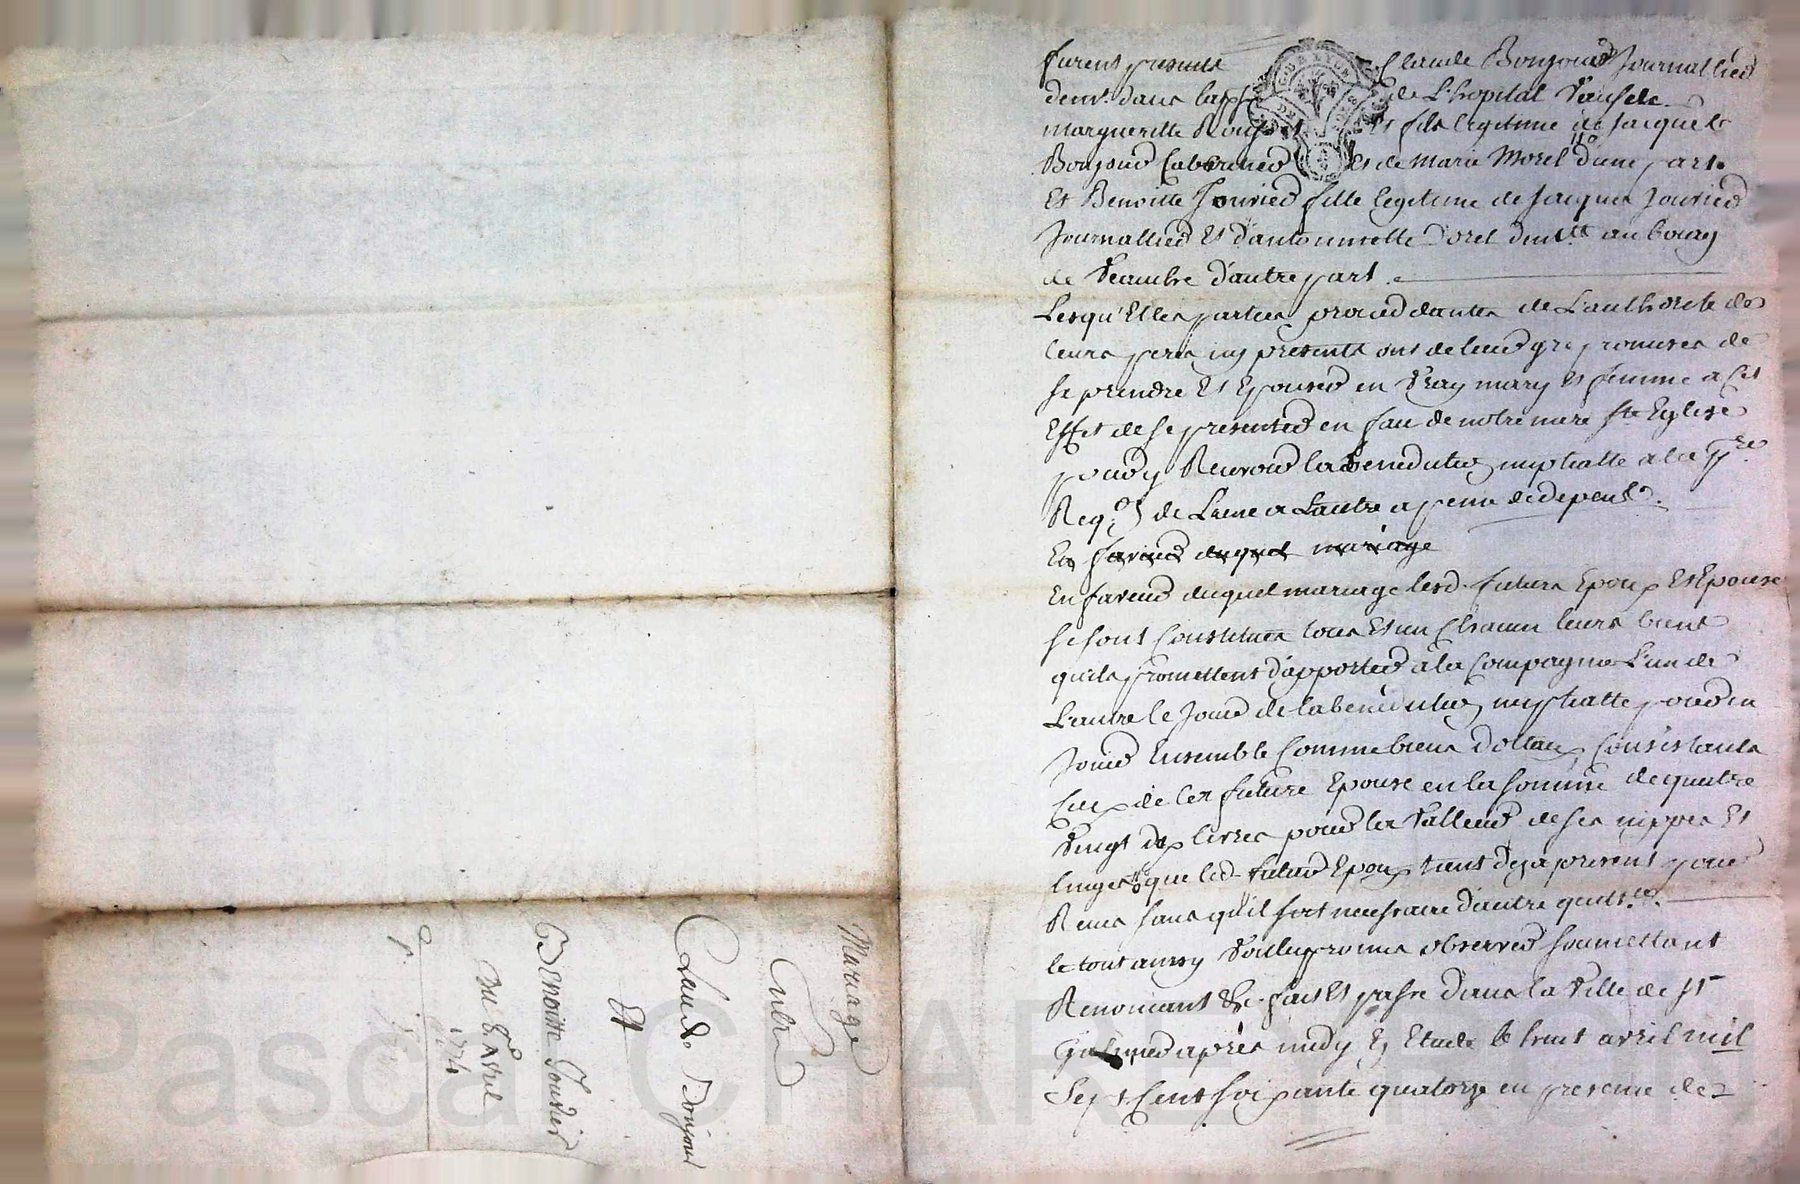 furent presents Claude Bonjour Journallier
demt. dans la psse de L'hopital
margueritte fils legitime de Jacques
Bonjour Cabaretier Et de marie Morel d'une part.
Et Benoitte Jouvier fille legitime de Jacques Jouvier
Journallier Et d'antoinnette demtt au bourg
de d'autre part.
Lesqu'Elles parties proceddantes de L'authorite de
leurs peres icy presents ont de leur gre promises de
se prendre Et Epouser en Vray mary Et femme a Cet
Effet de se presenter en face de notre mere ste Eglise
pour y Recevoir la benediction nuptialle a la pre
Reqon de L'une a L'autre a peine de depens.
En faveur duquel mariage
En faveur duquel mariage lesd. futurs Epoux Et Epouse
se sont Constitués tous Et un Chacun leurs biens
quils promettent d'apporter a la Compagnie L'un de
L'autre le Jour de la benediction nuptialle pour en
Jouir Ensemble Comme biens dottaux Consistants
Ceux de la future Epouse en la somme de quatre
Vingt dix livres pour la Valleur de ses nippes Et
linges que led. futur Epoux tient deja presents pour
Reçus sans qu'il soit necessaire d'autre quitce.
le tout ainsy Voulu promis observer soumettant
Renonçant &c. fait Et passé dans la Ville de st
Galmier après midy En Etude le huit avril mil
Sept Cent soixante quatorze en presence de
Mariage
Entre
Claude Bonjour
Et
Benoitte Jouvier
Du 8 Avril
1774